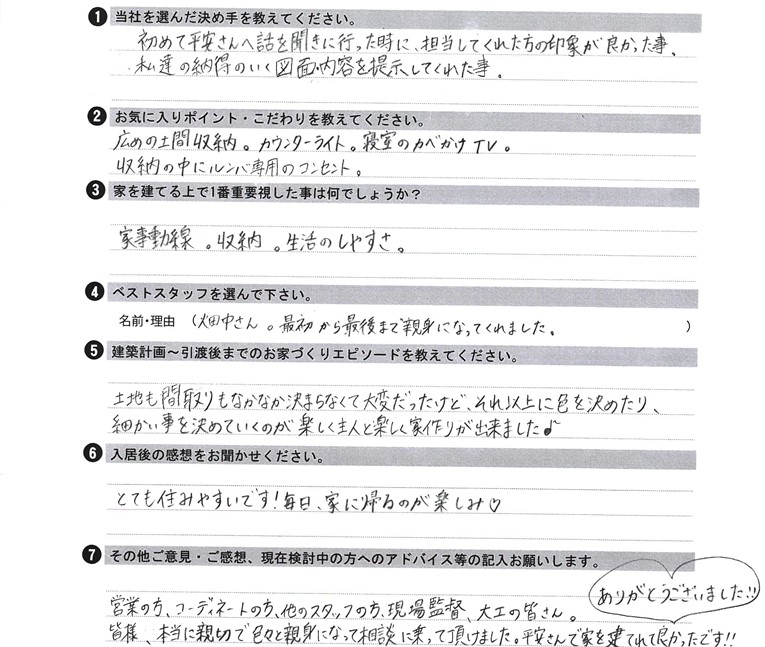 ❶ 当社を選んだ決め手を教えてください。
初めて平安さんへ話を聞きに行った時に、担当してくれた方の印象が良かった事、
私達の納得のいく図面内容を提示してくれた事。
❷ お気に入りポイント・こだわりを教えてください。
広めの土間収納。カウンターライト。寝室のカベかけTV。
収納の中にルンバ専用のコンセント。
❸ 家を建てる上で1番重要視した事は何でしょうか？
家事動線。収納。生活のしやすさ。
❹ ベストスタッフを選んで下さい。
名前・理由 （畑中さん。最初から最後まで親身になってくれました。）
❺ 建築計画～引渡後までのお家づくりエピソードを教えてください。
土地も間取りもなかなか決まらなくて大変だったけど、それ以上に色を決めたり、
細かい事を決めていくのが楽しく主人と楽しく家作りが出来ました♪
❻ 入居後の感想をお聞かせください。
とても住みやすいです！毎日、家に帰るのが楽しみ♡
❼ その他ご意見・ご感想、現在検討中の方へのアドバイス等の記入お願いします。
ありがとうございました!!
営業の方、コーディネートの方、他のスタッフの方、現場監督、大工の皆さん。
皆様、本当に親切で色々と親身になって相談に乗って頂けました。平安さんで家を建てれて良かったです!!